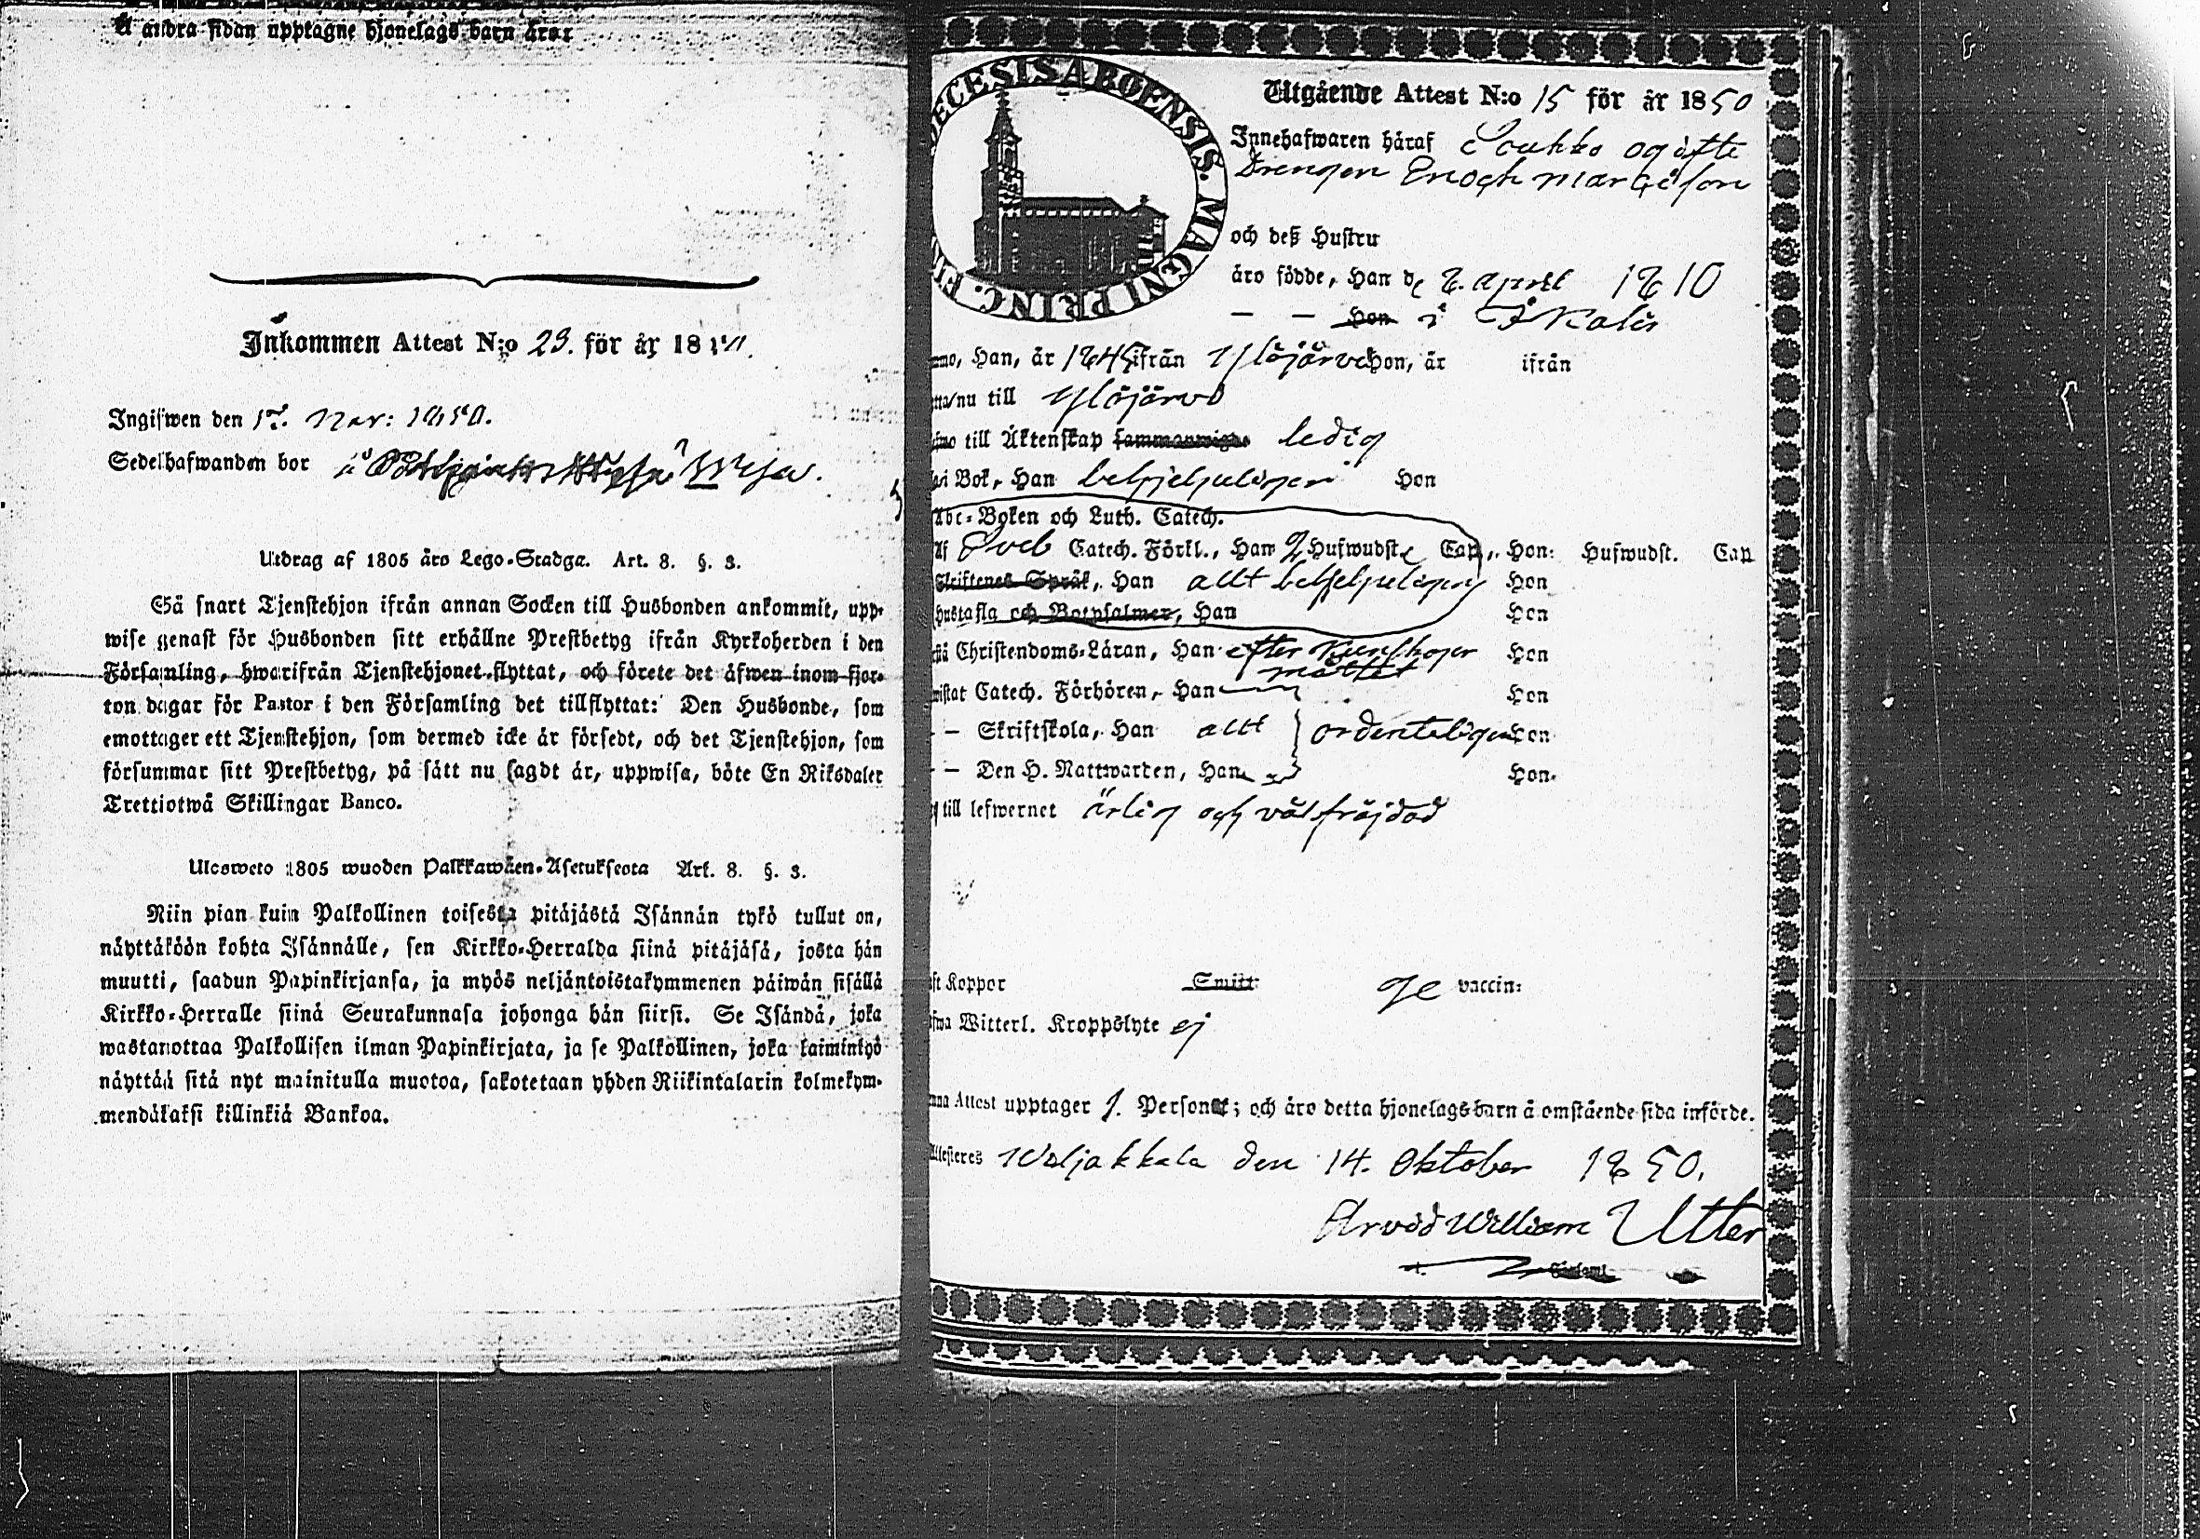 Å andra sidan upptagne hjonelags barn äro:
Inkommen Attest N:o 23. för år 1850.
Ingifwen den 17. Nov: 1850.
Sedelhafwanden bor i
Utdrag af 1805 års Lego-Stadga. Art. 8. §. 3.
Så snart Tjenstehjon ifrån annan Socken till Husbonden ankommit, upp-
wise genast för Husbonden sitt erhållne Prestbetyg ifrån Kyrkoherden i den
Församling, hwarifrån Tjenstehjonet flyttat, och förete det äfwen inom fjor-
ton dagar för Pastor i den Församling det tillflyttat: Den Husbonde, som
emottager ett Tjenstehjon, som dermed icke är försedt, och det Tjenstehjon, som
försummar sitt Prestbetyg, på sätt nu sagdt är, uppwisa, böte En Riksdaler
Trettiotwå Skillingar Banco.
Ulosweto 1805 wuoden Palkkawäen-Asetuksesta Art. 8. §. 3.
Niin pian kuin Palkollinen toisesta pitäjästä Isännän tykö tullut on,
näyttäköön kohta Isännälle, sen Kirkko-Herralda siinä pitäjäsä, josta hän
muutti, saadun Papinkirjansa, ja myös neljäntoistakymmenen päiwän sisällä
Kirkko-Herralle siinä Seurakunnasa johonga hän siirsi. Se Isändä, joka
wastanottaa Palkollisen ilman Papinkirjata, ja se Palkollinen, joka laimintyö
näyttää sitä nyt mainitulla muotoa, sakotetaan yhden Riikintalarin kolmekym-
mendäkaksi killinkiä Bankoa.
DECESIS ABOENSIS. MAGNI PRINC.
Utgående Attest N:o 15 för år 1850
Innehafwaren häraf ogifte
Drengen Enoch
och deß Hustru
äro födde, Han d. 2. April 1810
— — Hon i Ikalis
Han, år 1845 ifrån Ylöjärvi Hon, år ifrån
nu till Ylöjärvi
till Äktenskap sammanwigde ledig
i Bok, Han behjelpeligen Hon
Abc-Boken och Luth. Catech.
Af Sveb Catech. Förkl., Han 2 Hufwudst. Cap., Hon: Hufwudst. Cap
Skriftenes Språk, Han allt behjelpeligen Hon
Hustafla och Botpsalmer, Han Hon
Christendoms-Läran, Han efter kunskaps Hon
måttet
Catech. Förhören, Han Hon
— — Skriftskola, Han allt ordenteligen Hon
— — Den H. Nattwarden, Han Hon
till lefwernet ärlig och välfräjdad
Koppor Smitt: vaccin:
Witterl. Kroppslyte ej
Attest upptager 1. Person; och äro detta hjonelags barn å omstående sida införde.
Attesteres Wiljakkala den 14. Oktober 1850.
Arvid William Utter